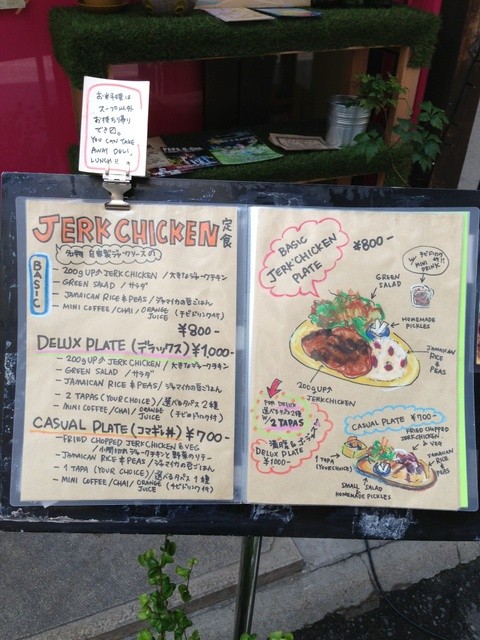 お料理は
スープ以外
お持ち帰り
でき□。
YOU CAN TAKE
AWAY DELI,
LUNCH!!
JERK CHICKEN 定食
名物 自家製ジャークソースの
BASIC
- 200g UP↑ JERK CHICKEN / 大きなジャークチキン
- GREEN SALAD / サラダ
- JAMAICAN RICE & PEAS / ジャマイカの豆ごはん
- MINI COFFEE/CHAI/ORANGE JUICE (チビドリンク付)
¥800-
DELUX PLATE (デラックス) ¥1,000-
- 200g UP↑ JERK CHICKEN / 大きなジャークチキン
- GREEN SALAD / サラダ
- JAMAICAN RICE & PEAS / ジャマイカの豆ごはん
- 2 TAPAS (YOUR CHOICE) / 選べるタパス2種
- MINI COFFEE/CHAI/ORANGE JUICE (チビドリンク付)
CASUAL PLATE (コマギレ丼) ¥700-
- FRIED CHOPPED JERKCHICKEN & VEG
小間切れジャークチキンと野菜のソテー
- JAMAICAN RICE & PEAS / ジャマイカの豆ごはん
- 1 TAPA (YOUR CHOICE) / 選べるタパス1種
- MINI COFFEE/CHAI/ORANGE JUICE (チビドリンク付)
BASIC
JERK CHICKEN
PLATE
¥800-
GREEN
SALAD
MINI
DRINK
HOMEMADE
PICKLES
JAMAICAN
RICE
&
PEAS
200g UP↑
JERKCHICKEN
FOR DELUX
選べるタパス2種
W/ 2 TAPAS
DELUX PLATE
¥1000-
CASUAL PLATE ¥700-
FRIED CHOPPED
JERKCHICKEN
& VEG
JAMAICAN
RICE
&
PEAS
1 TAPA
(YOUR CHOICE)
SMALL SALAD
HOMEMADE PICKLES